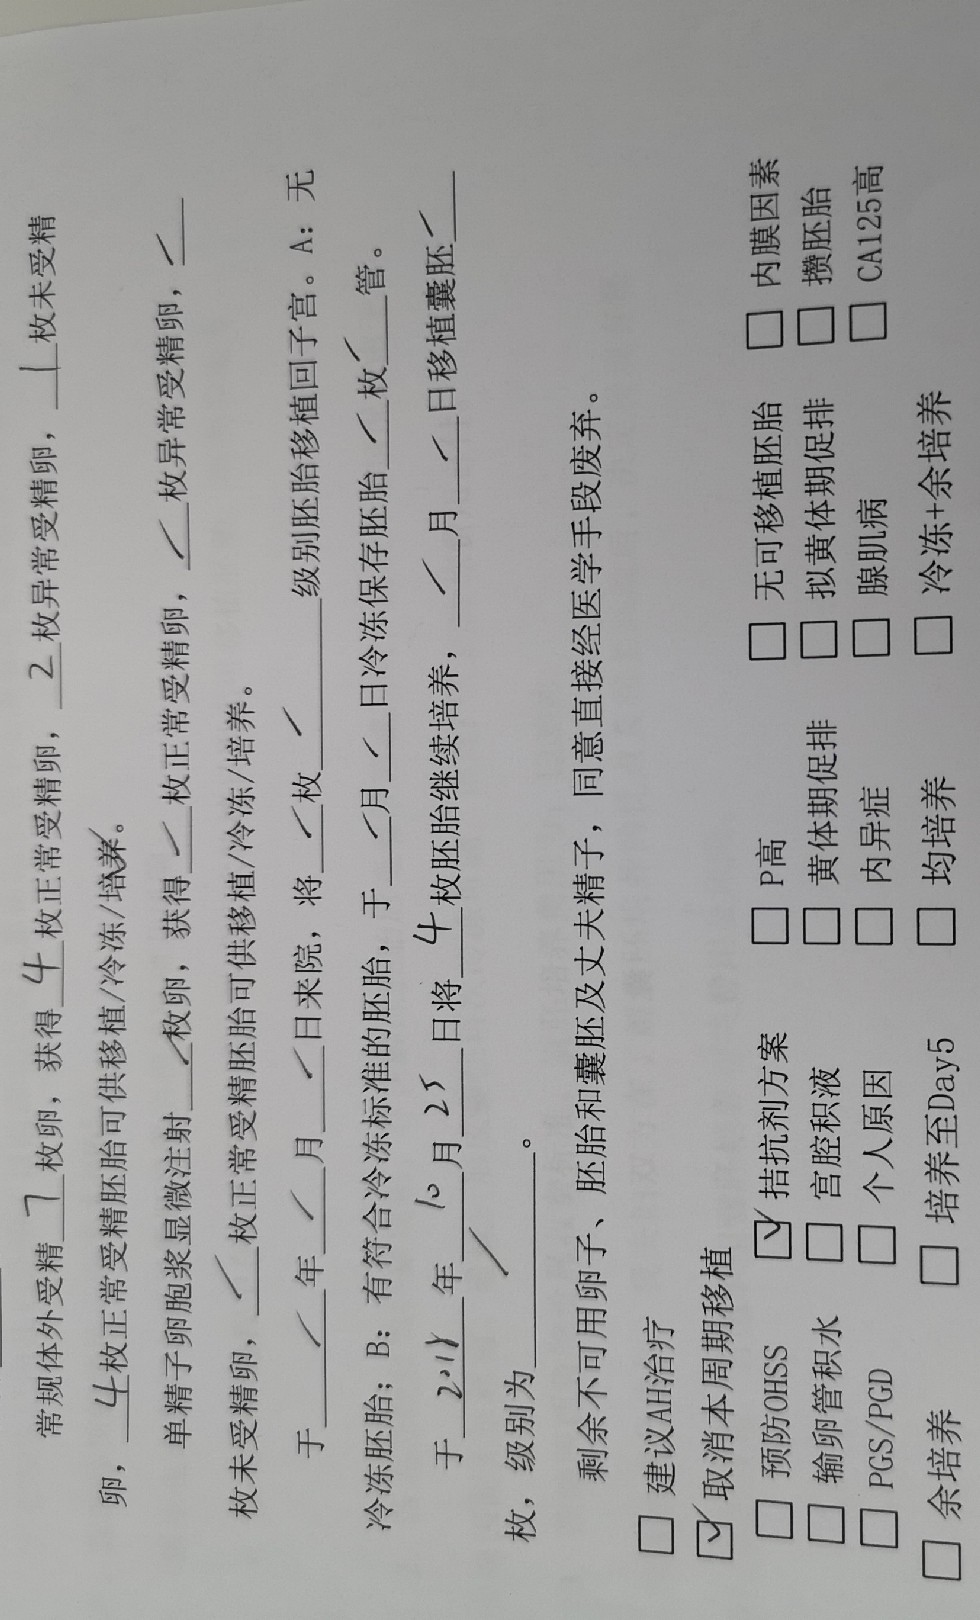 常规体外受精7枚卵，获得4枚正常受精卵，2枚异常受精卵，1枚未受精
卵，4枚正常受精胚胎可供移植/冷冻/培养。
单精子卵胞浆显微注射/枚卵，获得/枚正常受精卵，/枚异常受精卵，/
枚未受精卵，/枚正常受精胚胎可供移植/冷冻/培养。
于/年/月/日来院，将/枚/级别胚胎移植回子宫。A：无
冷冻胚胎；B：有符合冷冻标准的胚胎，于/月/日冷冻保存胚胎/枚/管。
于2018年10月25日将4枚胚胎继续培养，/月/日移植囊胚/
枚，级别为/。
剩余不可用卵子、胚胎和囊胚及丈夫精子，同意直接经医学手段废弃。
□ 建议AH治疗
☑ 取消本周期移植
□ 预防OHSS ☑ 拮抗剂方案 □ P高 □ 无可移植胚胎 □ 内膜因素
□ 输卵管积水 □ 宫腔积液 □ 黄体期促排 □ 拟黄体期促排 □ 攒胚胎
□ PGS/PGD □ 个人原因 □ 内异症 □ 腺肌病 □ CA125高
□ 余培养 □ 培养至Day5 □ 均培养 □ 冷冻+余培养